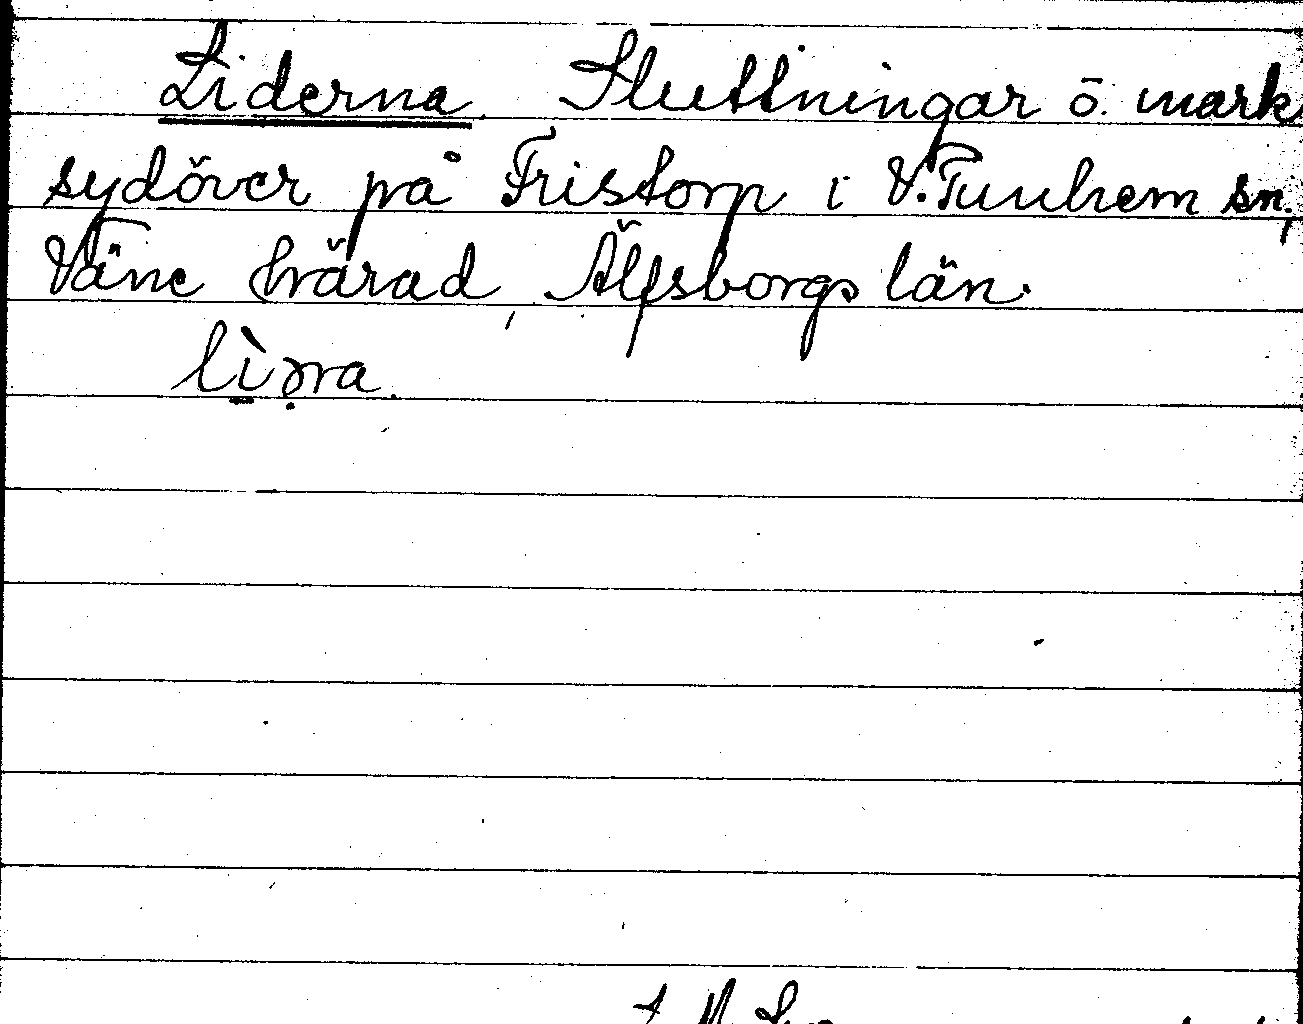 Liderna, Sluttningar o. mark
sydöver på Fristorp i V. Tunhem sn,
Väne härad, Älfsborgs län.